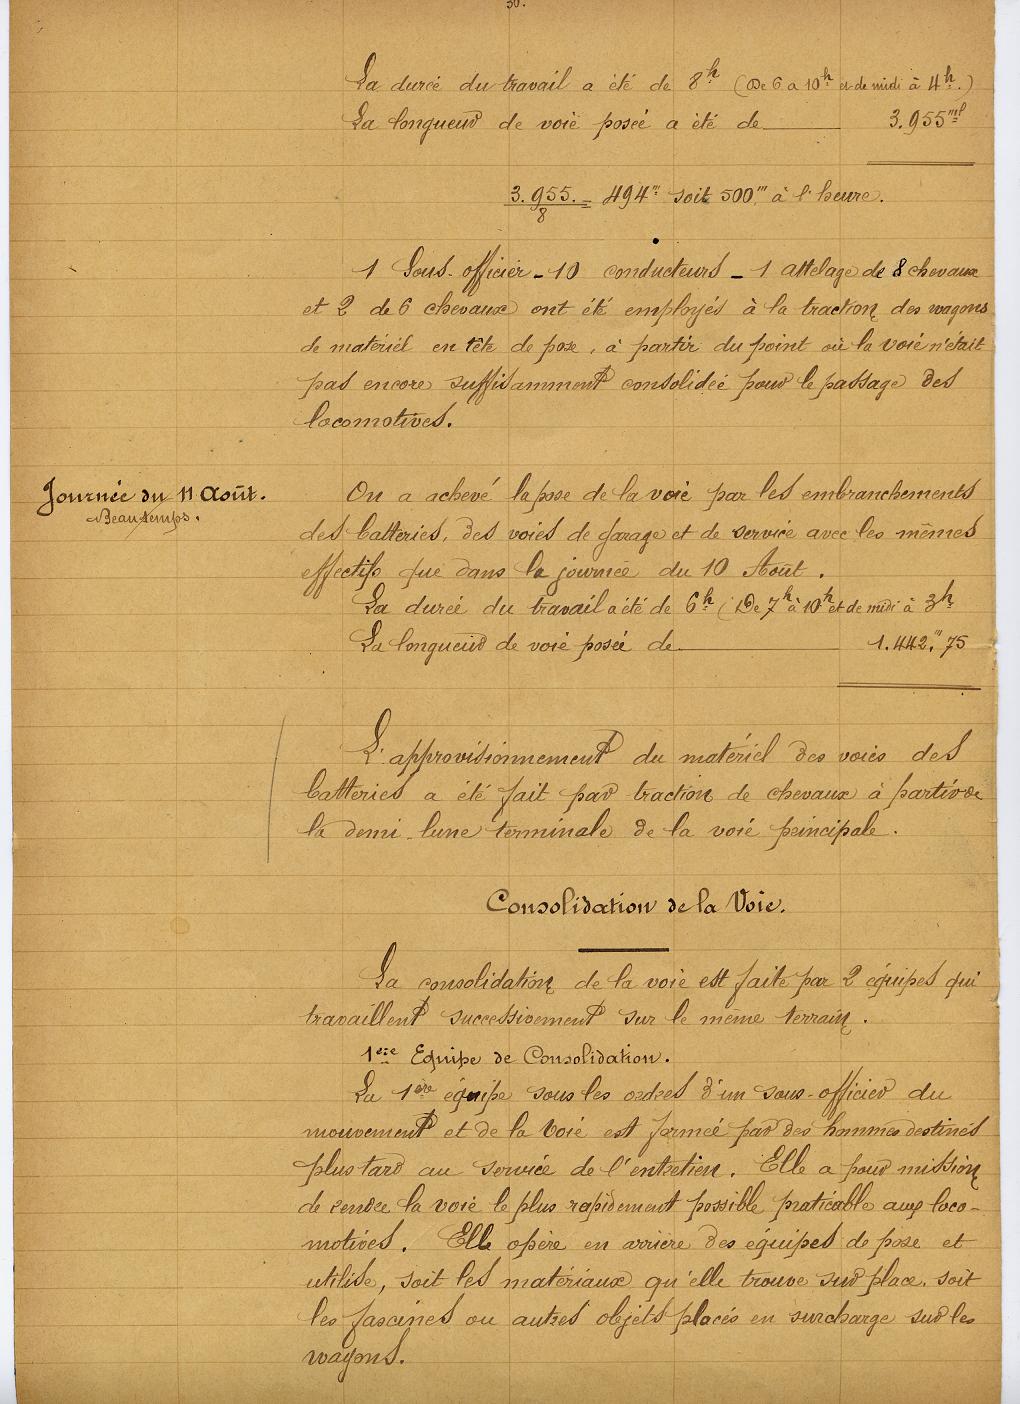 30.
La durée du travail a été de 8h (De 6 a 10h et de midi à 4h.)
La longueur de voie posée a été de 3.955ml
3.955. = 494m soit 500m à l'heure.
8
1 Sous-officier - 10 conducteurs - 1 attelage de 8 chevaux
et 2 de 6 chevaux ont été employés à la traction des wagons
de matériel en tête de pose, à partir du point où la voie n'était
pas encore suffisamment consolidée pour le passage des
locomotives.
Journée du 11 Août.
Beau temps.
On a achevé la pose de la voie par les embranchements
des batteries, des voies de garage et de service avec les mêmes
effectifs que dans la journée du 10 Août.
La durée du travail a été de 6h (De 7h à 10h et de midi à 3h
La longueur de voie posée de 1.442,m75
L'approvisionnement du matériel des voies des
batteries a été fait par traction de chevaux à partir de
la demi-lune terminale de la voie principale.
Consolidation de la Voie.
La consolidation de la voie est faite par 2 équipes qui
travaillent successivement sur le même terrain.
1ère Equipe de Consolidation.
La 1ère équipe sous les ordres d'un sous-officier du
mouvement et de la Voie est formée par des hommes destinés
plus tard au service de l'entretien. Elle a pour mission
de rendre la voie le plus rapidement possible praticable aux loco-
motives. Elle opère en arrière des équipes de pose et
utilise, soit les matériaux qu'elle trouve sur place, soit
les fascines ou autres objets placés en surcharge sur les
wagons.